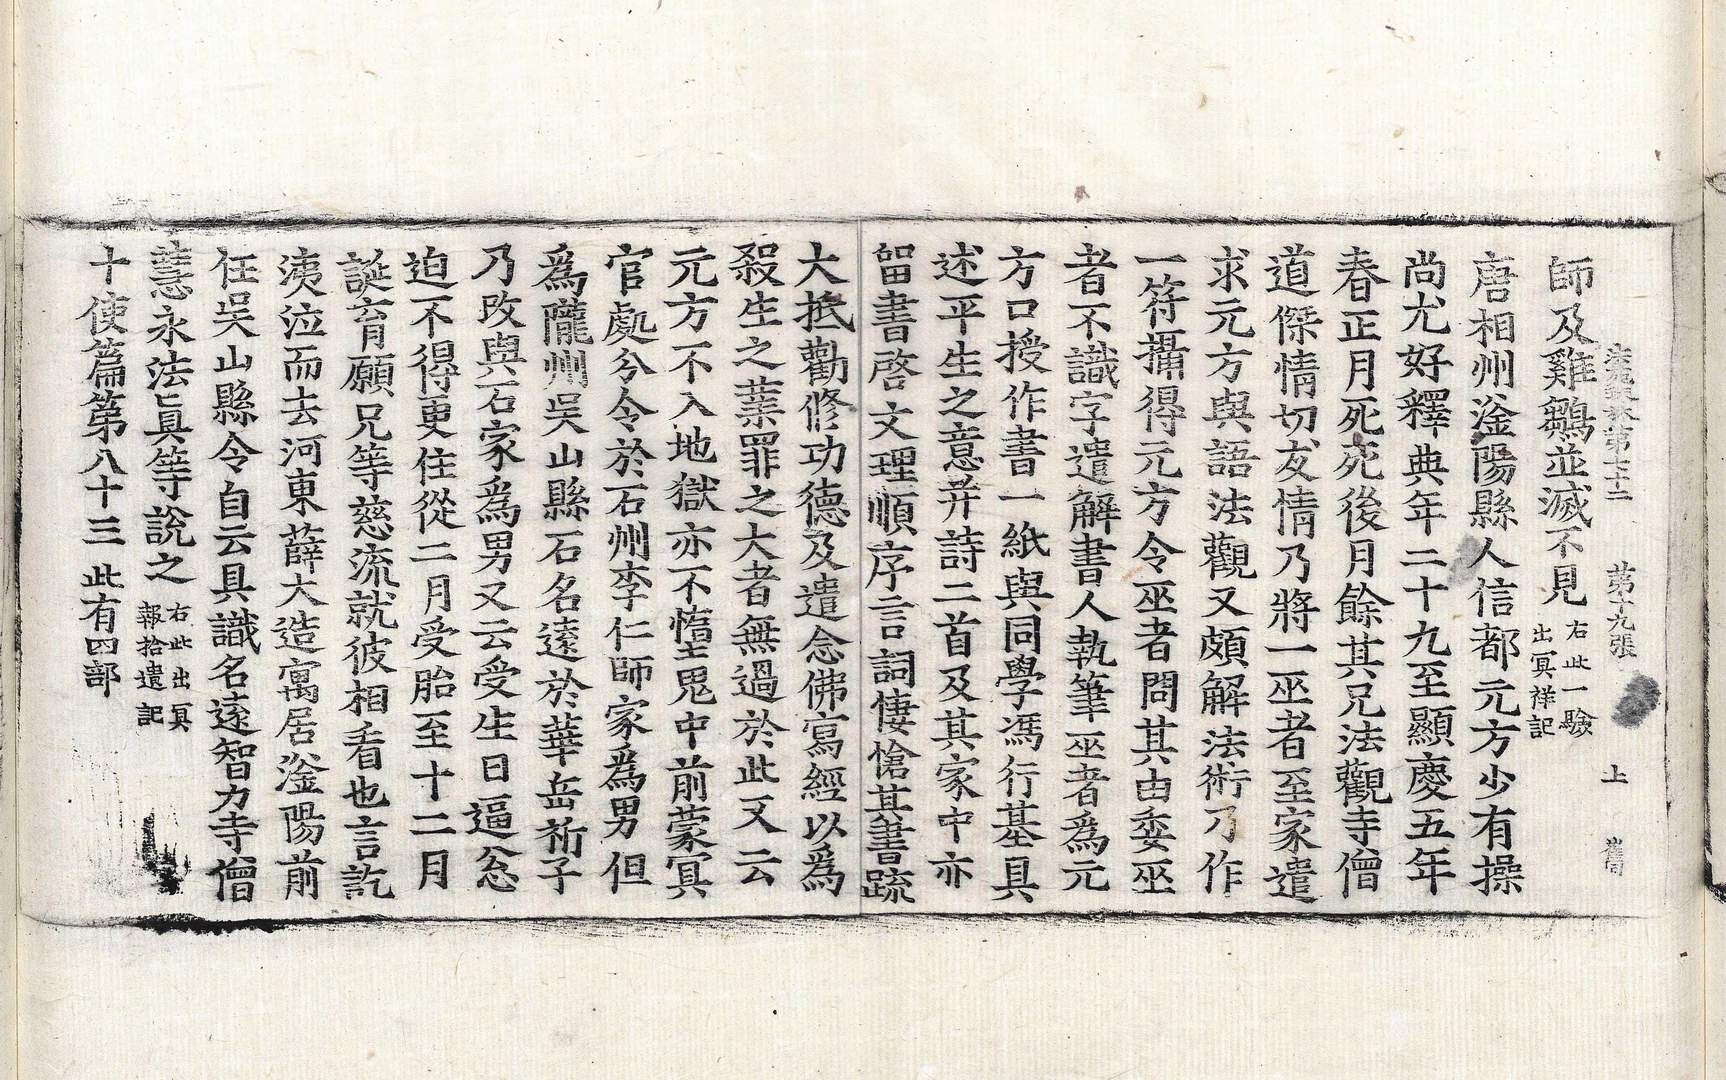 法苑珠林第七十二 第十九張 上 舊
師及雞鶵並滅不見右此一驗出冥祥記
唐相州滏陽縣人信都元方少有操
尚尤好釋典年二十九至顯慶五年
春正月死死後月餘其兄法觀寺僧
道傑情切友情乃將一巫者至家遣
求元方與語法觀又頗解法術乃作
一符攝得元方令巫者問其由委巫
者不識字遣解書人執筆巫者爲元
方口授作書一紙與同學馮行基具
述平生之意并詩二首及其家中亦
留書啓文理順序言詞悽愴其書疏
大抵勸修功德及遣念佛寫經以爲
殺生之業罪之大者無過於此又云
元方不入地獄亦不墮鬼中前蒙冥
官處分令於石州李仁師家爲男但
爲隴州吳山縣石名遠於華岳祈子
乃改與石家爲男又云受生日逼忿
迫不得更住從二月受胎至十二月
誕育願兄等慈流就彼相看也言訖
洟泣而去河東薛大造寓居滏陽前
任吳山縣令自云具識名遠智力寺僧
慧永法眞等說之右此出冥報拾遺記
十使篇第八十三 此有四部